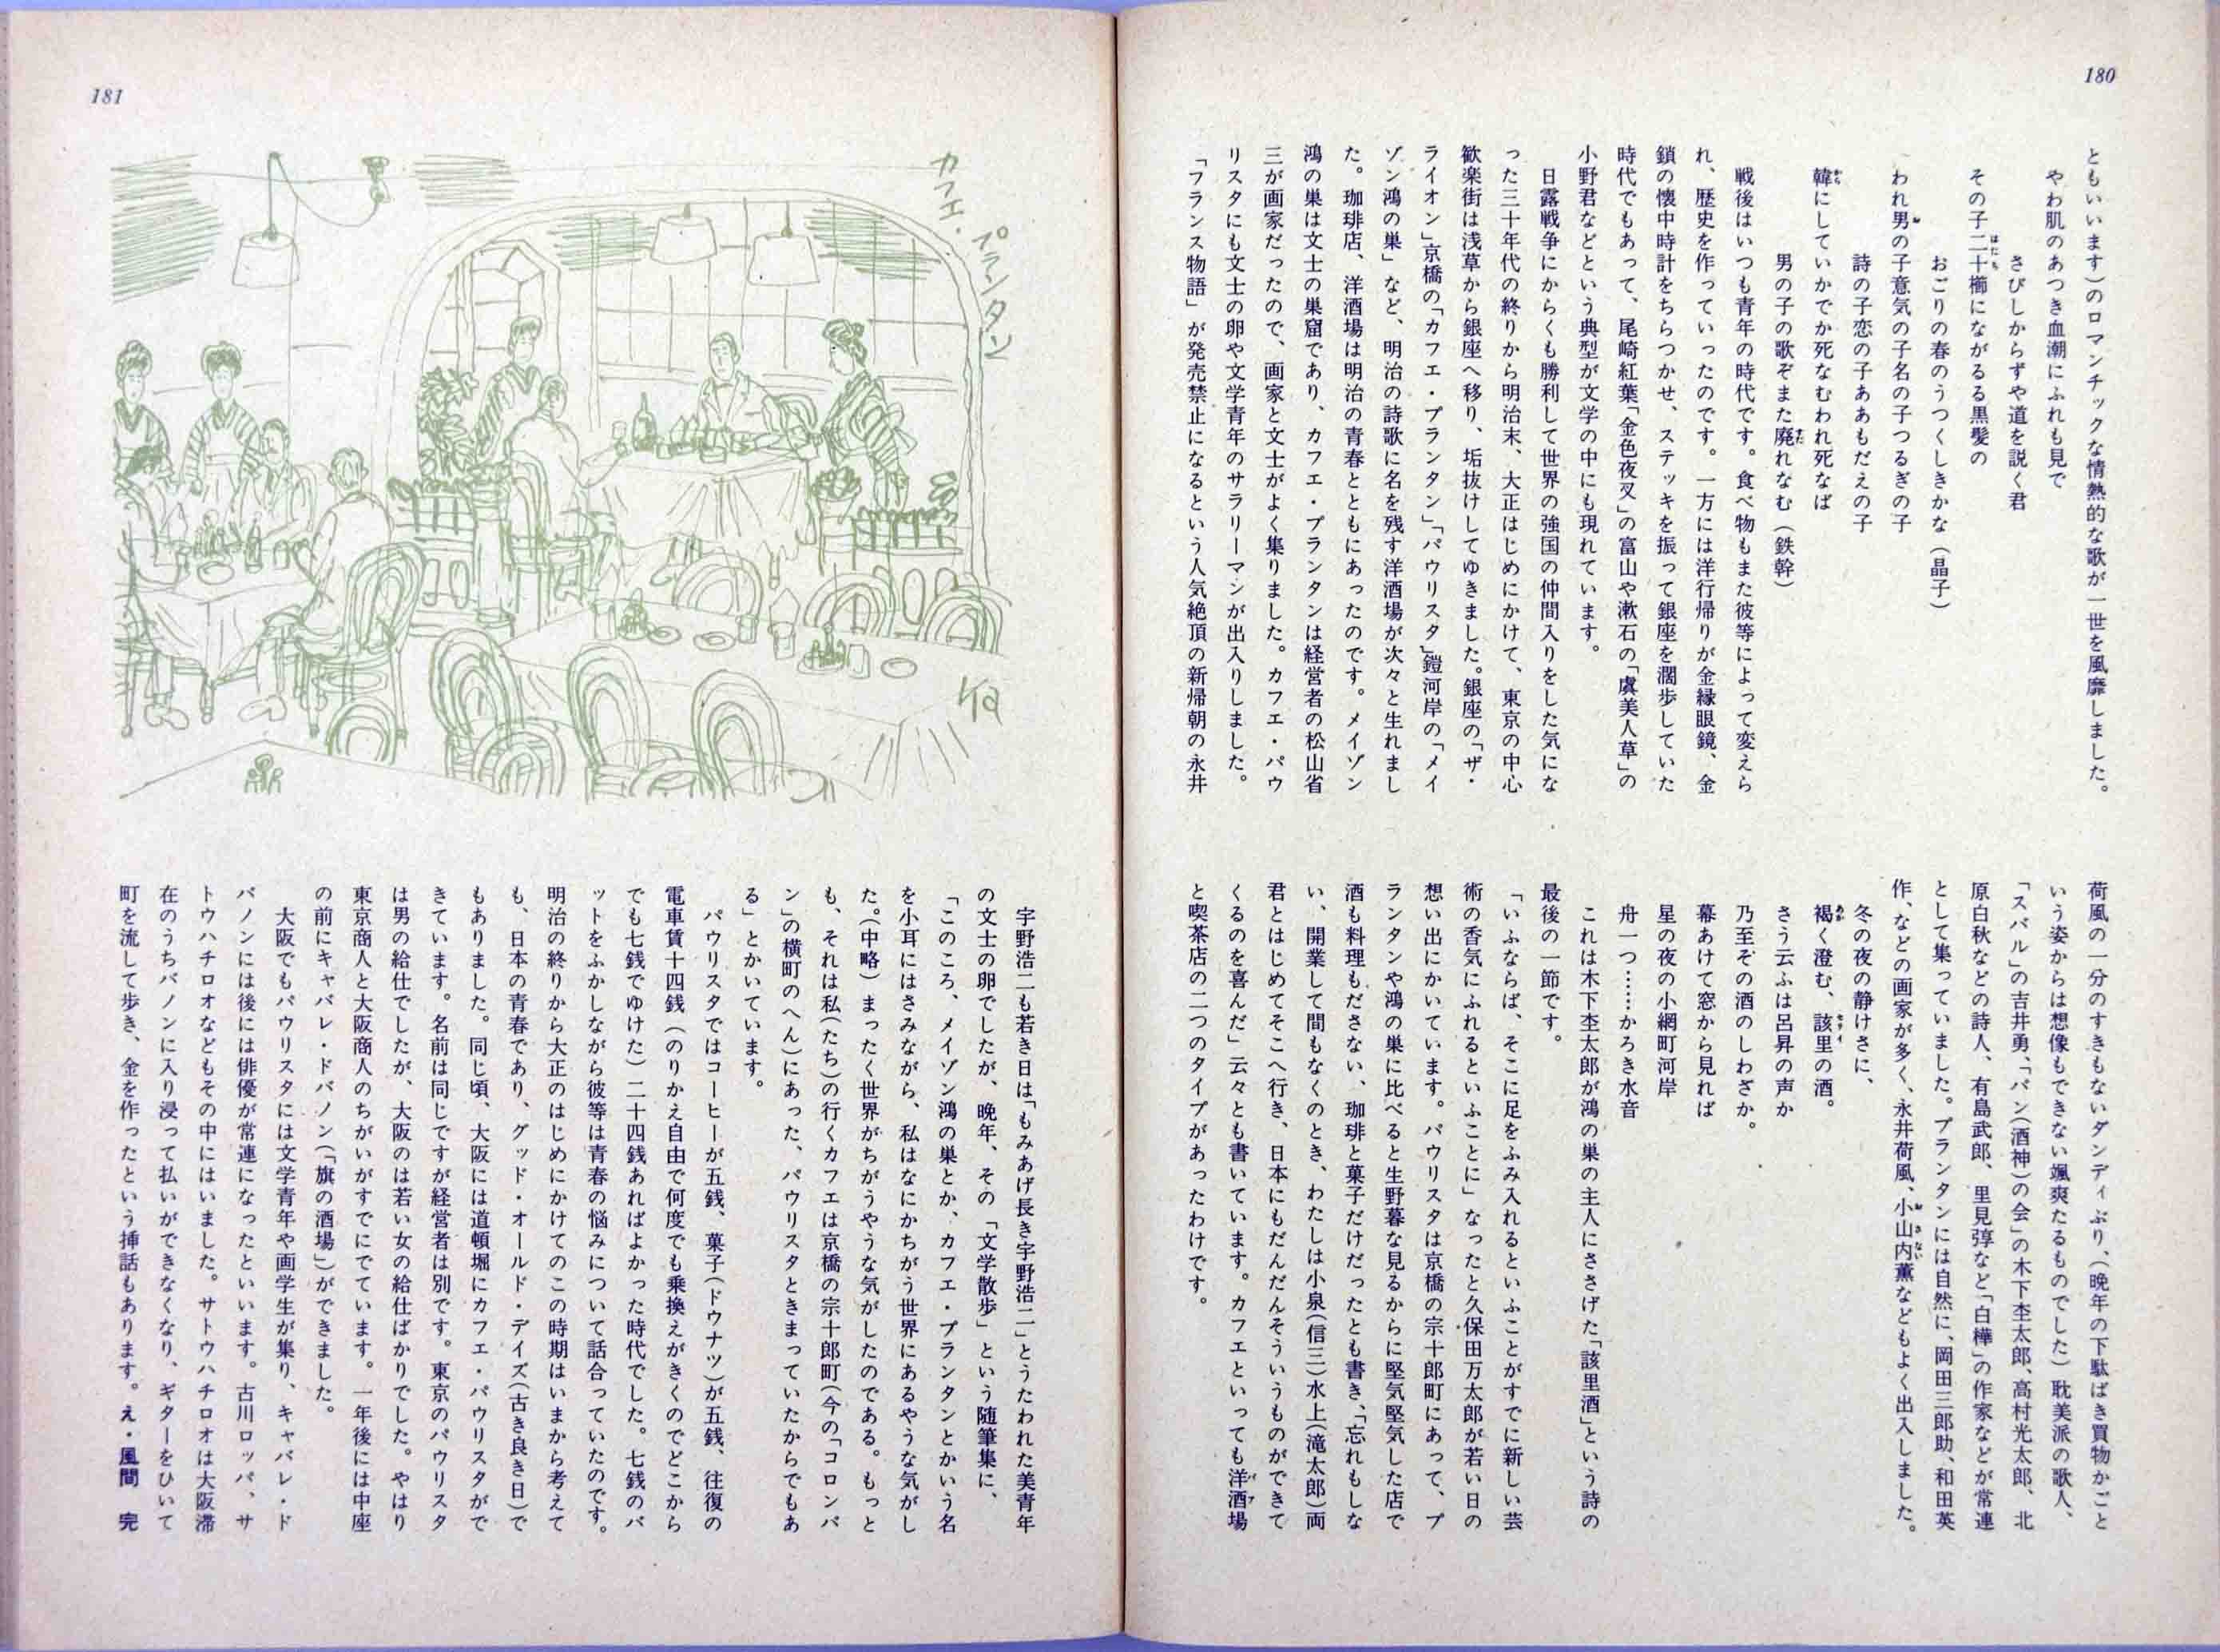 180
ともいいます)のロマンチックな情熱的な歌が一世を風靡しました。
やわ肌のあつき血潮にふれも見で
さびしからずや道を説く君
その子二十櫛にながるる黒髪の
おごりの春のうつくしきかな(晶子)
われ男の子意気の子名の子つるぎの子
詩の子恋の子ああもだえの子
韓にしていかでか死なむわれ死なば
男の子の歌ぞまた廃れなむ(鉄幹)
戦後はいつも青年の時代です。食べ物もまた彼等によって変えら
れ、歴史を作っていったのです。一方には洋行帰りが金縁眼鏡、金
鎖の懐中時計をちらつかせ、ステッキを振って銀座を濶歩していた
時代でもあって、尾崎紅葉「金色夜叉」の富山や漱石の「虞美人草」の
小野君などという典型が文学の中にも現れています。
日露戦争にからくも勝利して世界の強国の仲間入りをした気にな
った三十年代の終りから明治末、大正はじめにかけて、東京の中心
歓楽街は浅草から銀座へ移り、垢抜けしてゆきました。銀座の「ザ・
ライオン」京橋の「カフェ・プランタン」「パウリスタ」鎧河岸の「メイ
ゾン鴻の巣」など、明治の詩歌に名を残す洋酒場が次々と生れまし
た。珈琲店、洋酒場は明治の青春とともにあったのです。メイゾン
鴻の巣は文士の巣窟であり、カフェ・プランタンは経営者の松山省
三が画家だったので、画家と文士がよく集りました。カフェ・パウ
リスタにも文士の卵や文学青年のサラリーマンが出入りしました。
「フランス物語」が発売禁止になるという人気絶頂の新帰朝の永井
荷風の一分のすきもないダンディぶり、(晩年の下駄ばき買物かごと
いう姿からは想像もできない颯爽たるものでした)耽美派の歌人、
「スバル」の吉井勇、「パン(酒神)の会」の木下杢太郎、高村光太郎、北
原白秋などの詩人、有島武郎、里見弴など「白樺」の作家などが常連
として集っていました。プランタンには自然に、岡田三郎助、和田英
作、などの画家が多く、永井荷風、小山内薫などもよく出入しました。
冬の夜の静けさに、
褐く澄む、該里の酒。
さう云ふは呂昇の声か
乃至その酒のしわざか。
幕あけて窓から見れば
星の夜の小網町河岸
舟一つ……かろき水音
これは木下杢太郎が鴻の巣の主人にささげた「該里酒」という詩の
最後の一節です。
「いふならば、そこに足をふみ入れるといふことがすでに新しい芸
術の香気にふれるといふことに」なったと久保田万太郎が若い日の
想い出にかいています。パウリスタは京橋の宗十郎町にあって、プ
ランタンや鴻の巣に比べると生野暮な見るからに堅気堅気した店で
酒も料理もださない、珈琲と菓子だけだったとも書き、「忘れもしな
い、開業して間もなくのとき、わたしは小泉(信三)水上(滝太郎)両
君とはじめてそこへ行き、日本にもだんだんそういうものができて
くるのを喜んだ」云々とも書いています。カフェといっても洋酒場
と喫茶店の二つのタイプがあったわけです。
181
カフェ・プランタン
宇野浩二も若き日は「もみあげ長き宇野浩二」とうたわれた美青年
の文士の卵でしたが、晩年、その「文学散歩」という随筆集に、
「このころ、メイゾン鴻の巣とか、カフェ・プランタンとかいう名
を小耳にはさみながら、私はなにかちがう世界にあるやうな気がし
た。(中略)まったく世界がちがうやうな気がしたのである。もっと
も、それは私(たち)の行くカフェは京橋の宗十郎町(今の「コロンバ
ン」の横町のへん)にあった、パウリスタときまっていたからでもあ
る」とかいています。
パウリスタではコーヒーが五銭、菓子(ドウナツ)が五銭、往復の
電車賃十四銭(のりかえ自由で何度でも乗換えがきくのでどこから
でも七銭でゆけた)二十四銭あればよかった時代でした。七銭のバ
ットをふかしながら彼等は青春の悩みについて話合っていたのです。
明治の終りから大正のはじめにかけてのこの時期はいまから考えて
も、日本の青春であり、グッド・オールド・デイズ(古き良き日)で
もありました。同じ頃、大阪には道頓堀にカフェ・パウリスタがで
きています。名前は同じですが経営者は別です。東京のパウリスタ
は男の給仕でしたが、大阪のは若い女の給仕ばかりでした。やはり
東京商人と大阪商人のちがいがすでにでています。一年後には中座
の前にキャバレ・ドパノン(「旗の酒場」)ができました。
大阪でもパウリスタには文学青年や画学生が集り、キャバレ・ド
パノンには後には俳優が常連になったといいます。古川ロッパ、サ
トウハチロオなどもその中にはいました。サトウハチロオは大阪滞
在のうちパノンに入り浸って払いができなくなり、ギターをひいて
町を流して歩き、金を作ったという挿話もあります。え・風間 完